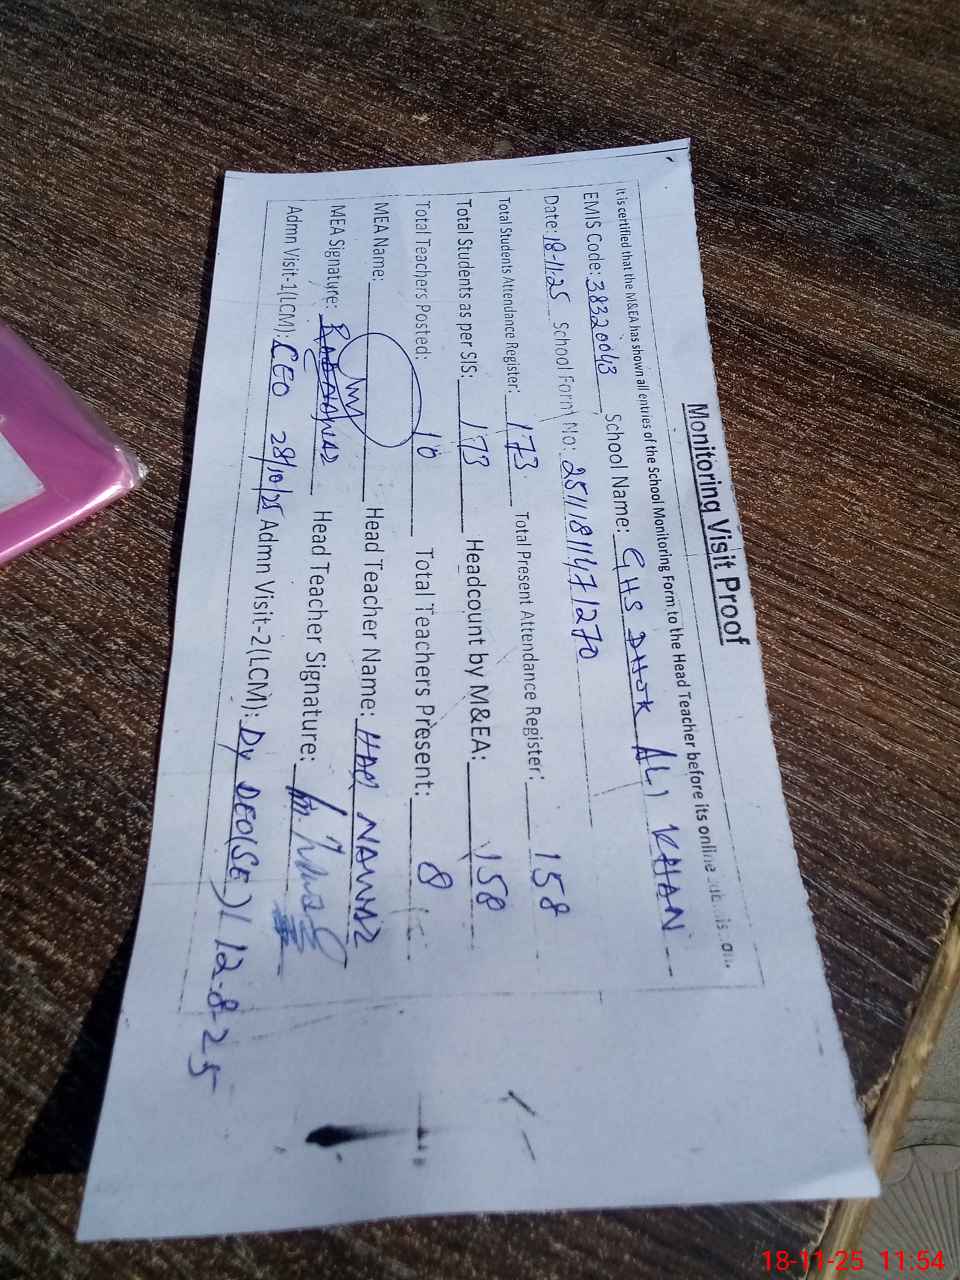 Monitoring Visit Proof
It is certified that the M&EA has shown all entries of the School Monitoring Form to the Head Teacher before its online
EMIS Code: 38320043 School Name: GHS DHOK ALI KHAN
Date: 18-11-25 School Form No: 2511181147 1270
Total Students Attendance Register: 173 Total Present Attendance Register: 158
Total Students as per SIS: 173 Headcount by M&EA: 158
Total Teachers Posted: 10 Total Teachers Present: 8
MEA Name: Head Teacher Name: NAWAZ
MEA Signature: Head Teacher Signature:
Admn Visit-1(LCM): CEO 28/10/25 Admn Visit-2(LCM): Dy DEO(SE) / 12-8-25
18-11-25 11:54